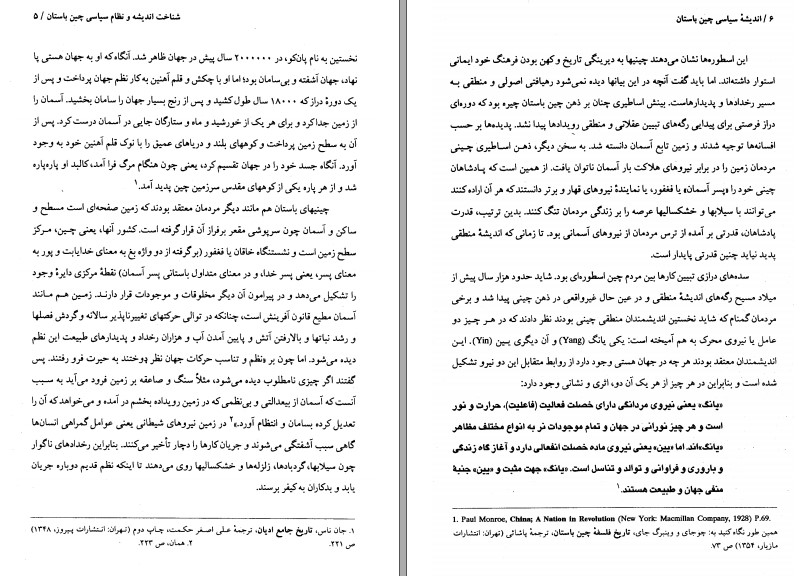 شناخت اندیشه و نظام سیاسی چین باستان / ۵
نخستین به نام پان‌کو، در ۲۰۰۰۰۰۰ سال پیش در جهان ظاهر شد. آنگاه که او به جهان هستی پا
نهاد، جهان آشفته و بی‌سامان بود؛ اما او با چکش و قلم آهنین به کار نظم جهان پرداخت و پس از
یک دورهٔ دراز که ۱۸۰۰۰ سال طول کشید و پس از رنج بسیار جهان را سامان بخشید. آسمان را
از زمین جدا کرد و برای هر یک از خورشید و ماه و ستارگان جایی در آسمان درست کرد. پس از
آن به سطح زمین پرداخت و کوههای بلند و دریاهای عمیق را با نوک قلم آهنین خود به وجود
آورد. آنگاه جسد خود را در جهان تقسیم کرد، یعنی چون هنگام مرگ فرا آمد، کالبد او پاره‌پاره
شد و از هر پاره یکی از کوههای مقدس سرزمین چین پدید آمد.۱
چینیهای باستان هم مانند دیگر مردمان معتقد بودند که زمین صفحه‌ای است مسطح و
ساکن و آسمان چون سرپوشی مقعر برفراز آن قرار گرفته است. کشور آنها، یعنی چین، مرکز
سطح زمین است و نشستگاه خاقان یا فغفور (برگرفته از دو واژه بغ به معنای خدایابت و پور به
معنای پسر، یعنی پسر خدا، و در معنای متداول باستانی پسر آسمان) نقطهٔ مرکزی دایرهٔ وجود
را تشکیل می‌دهد و در پیرامون آن دیگر مخلوقات و موجودات قرار دارند. زمین هم مانند
آسمان مطیع قانون آفرینش است، چنانکه در توالی حرکتهای تغییرناپذیر سالانه و گردش فصلها
و رشد نباتها و بالارفتن آتش و پایین آمدن آب و هزاران رخداد و پدیدارهای طبیعت این نظم
دیده می‌شود. اما چون بر «نظم و تناسب حرکات جهان نظر دوختند به حیرت فرو رفتند. پس
گفتند اگر چیزی نامطلوب دیده می‌شود، مثلاً سنگ و صاعقه بر زمین فرود می‌آید به سبب
آنست که آسمان از بیعدالتی و بی‌نظمی که در زمین رویداده بخشم در آمده و می‌خواهد که آن را
تعدیل کرده بسامان و انتظام آورد.»۲ در زمین نیروهای شیطانی یعنی عوامل گمراهی انسان‌ها
گاهی سبب آشفتگی می‌شوند و جریان کارها را دچار تأخیر می‌کنند. بنابراین رخدادهای ناگوار
چون سیلابها، گردبادها، زلزله‌ها و خشکسالیها روی می‌دهند تا اینکه نظم قدیم دوباره جریان
یابد و بدکاران به کیفر برسند.
۱. جان ناس، تاریخ جامع ادیان، ترجمهٔ علی اصغر حکمت، چاپ دوم (تهران: انتشارات پیروز، ۱۳۴۸)
ص ۲۲۱.
۲. همان، ص ۲۲۳.
۶ / اندیشهٔ سیاسی چین باستان
این اسطوره‌ها نشان می‌دهند چینیها به دیرینگی تاریخ و کهن بودن فرهنگ خود ایمانی
استوار داشته‌اند. اما باید گفت آنچه در این بیانها دیده نمی‌شود رهیافتی اصولی و منطقی به
مسیر رخدادها و پدیدارهاست. بینش اساطیری چنان بر ذهن چین باستان چیره بود که دوره‌ای
دراز فرصتی برای پیدایی رگه‌های تبیین عقلانی و منطقی رویدادها پیدا نشد. پدیده‌ها بر حسب
افسانه‌ها توجیه شدند و زمین تابع آسمان دانسته شد. به سخن دیگر، ذهن اساطیری چینی
مردمان زمین را در برابر نیروهای هلاکت بار آسمان ناتوان یافت. از همین است که پادشاهان
چینی خود را «پسر آسمان» یا فغفور، یا نمایندهٔ نیروهای قهار و برتر دانستند که هر آن اراده کنند
می‌توانند با سیلابها و خشکسالیها عرصه را بر زندگی مردمان تنگ کنند. بدین ترتیب، قدرت
پادشاهان، قدرتی بر آمده از ترس مردمان از نیروهای آسمانی بود. تا زمانی که اندیشهٔ منطقی
پدید نیاید چنین قدرتی پایدار است.
سده‌های درازی تبیین کارها بین مردم چین اسطوره‌ای بود. شاید حدود هزار سال پیش از
میلاد مسیح رگه‌های اندیشهٔ منطقی و در عین حال غیرواقعی در ذهن چینی پیدا شد و برخی
مردمان گمنام که شاید نخستین اندیشمندان منطقی چینی بودند نظر دادند که در هر چیز دو
عامل یا نیروی محرک به هم آمیخته است: یکی یانگ (Yang) و آن دیگری یین (Yin). این
اندیشمندان معتقد بودند هر چه در جهان هستی وجود دارد از روابط متقابل این دو نیرو تشکیل
شده است و بنابراین در هر چیز از هر یک آن دو، اثری و نشانی وجود دارد:
«یانگ» یعنی نیروی مردانگی دارای خصلت فعالیت (فاعلیت)، حرارت و نور
است و هر چیز نورانی در جهان و تمام موجودات نر به انواع مختلف مظاهر
«یانگ»اند. اما «یین» یعنی نیروی ماده خصلت انفعالی دارد و آغاز گاه زندگی
و باروری و فراوانی و توالد و تناسل است. «یانگ» جهت مثبت و «یین» جنبهٔ
منفی جهان و طبیعت هستند.۱
1. Paul Monroe, China; A Nation in Revolution (New York: Macmillan Company, 1928) P.69.
همین طور نگاه کنید به: چوجای و وینبرگ جای، تاریخ فلسفهٔ چین باستان، ترجمهٔ پاشائی (تهران: انتشارات
مازیار، ۱۳۵۴) ص ۷۳.